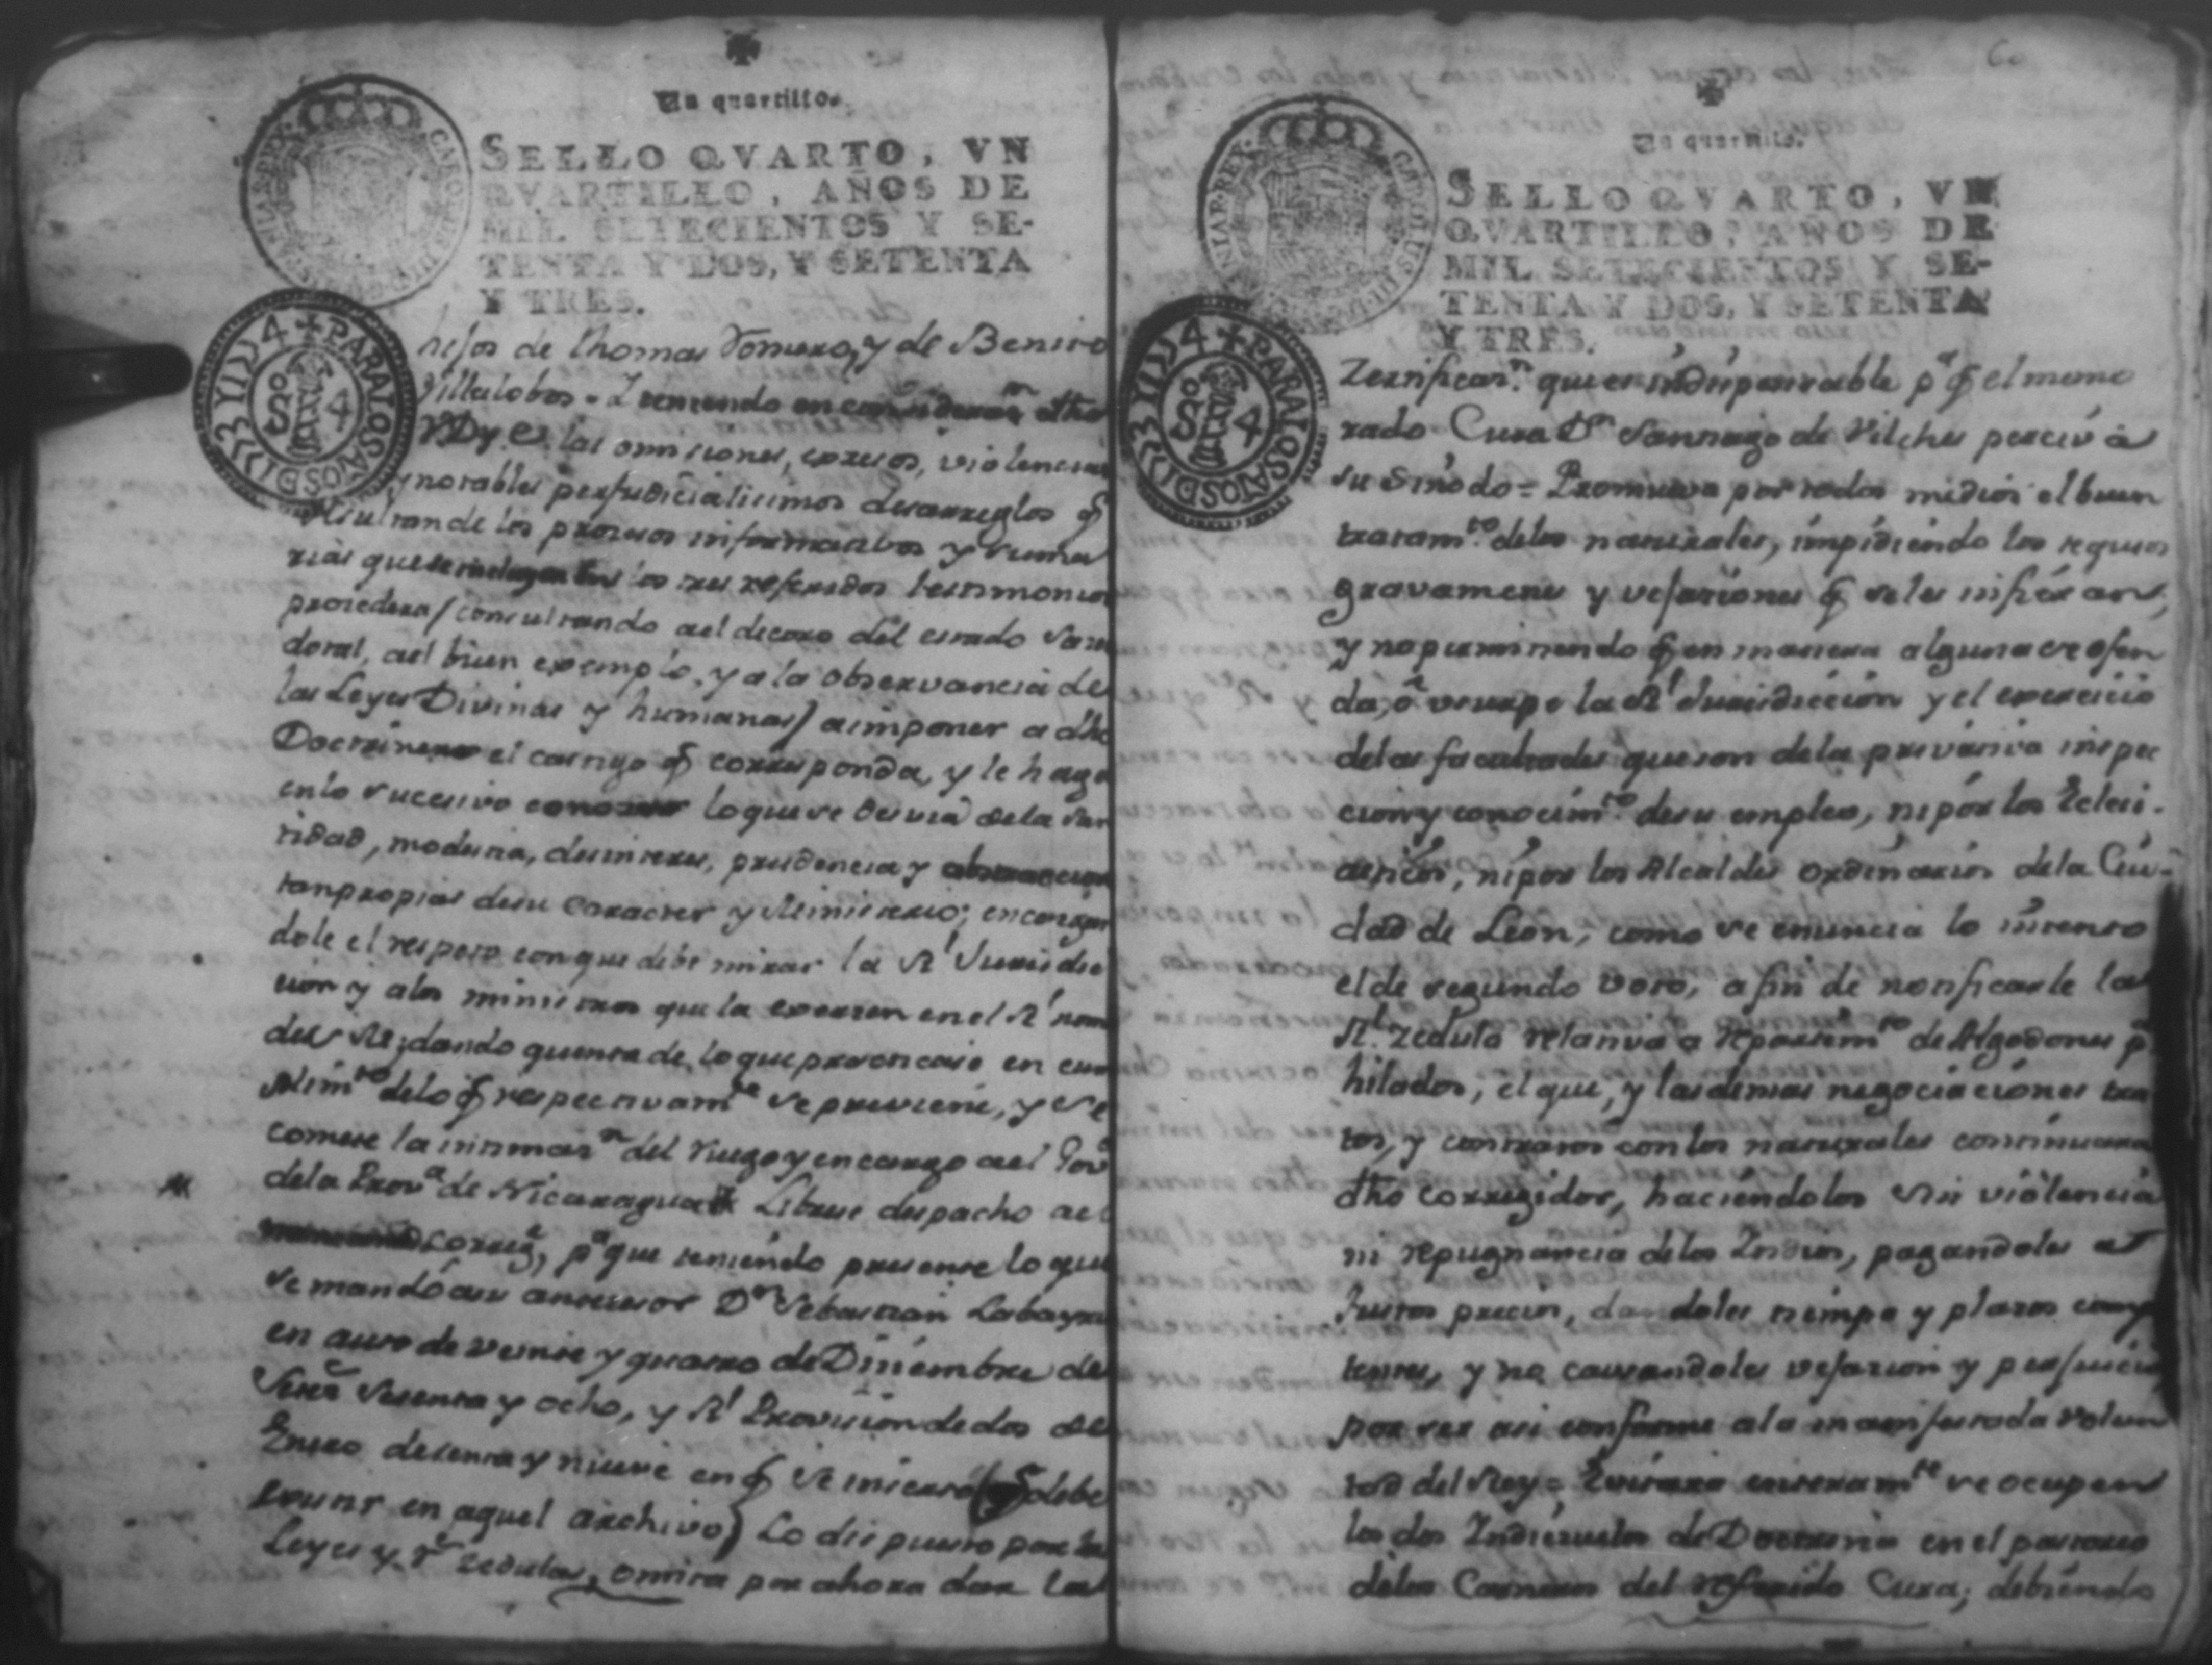 Un quartillo.
SELLO QVARTO, VN
QVARTILLO, AÑOS DE
MIL SETECIENTOS Y SE-
TENTA Y DOS, Y SETENTA
Y TRES.
CAROLUS III D G HISPANIAR REX
PARA LOS AÑOS DE 1774
Sº 4
hijos de thomas Romero, y de Benito
Villalobos = Y teniendo en considerazⁿ dho
las omisiones, excesos, violencias
y notables perjudicialisimos desarreglos q̃
resultan de los procesos informativos y suma
rias que los tres referidos testimonios
procedera/ consultando al decoro del estado Sacer
dotal, al buen exemplo, y a la observancia de
las Leyes Divinas y humanas) a imponer a dho
Doctrinero el castigo q̃ corresponda, y le haga
en lo sucesivo conozer lo que se desvia de la San
tidad, modestia, desinteres, prudencia y abstraccion
tan propias de su caracter y Ministerio; encargan
dole el respeto con que debe mirar la Rˡ Jurisdic
cion y a los ministros que la exerzen en el Rˡ nom
del Rey; dando quenta de lo que practicase en cum
plimᵗᵒ de lo q̃ respectivamᵗᵉ se previene, y se
comete la intimazⁿ del ruego y encargo al Govʳ
de la Provᵃ de Nicaragua Librese despacho al
Correxʳ, pᵃ que teniendo presente lo que
se mandó a su antecesor Dⁿ Sebastian Labayru
en auto de veinte y quatro de Diciembre de
Setezˢ Sesenta y ocho, y Rˡ Provision de dos de
Enero de setenta y nueve en q̃ se inserto (q̃ debe
existir en aquel archivo) Lo dispuesto por las
Leyes y Rˢ Zedulas, omita por ahora dar las
Un quartillo.
SELLO QVARTO, VN
QVARTILLO, AÑOS DE
MIL SETECIENTOS Y SE-
TENTA Y DOS, Y SETENTA
Y TRES.
CAROLUS III D G HISPANIAR REX
PARA LOS AÑOS DE 1774
Sº 4
Zertificazⁿ que es indispensable pᵃ q̃ el menc
rado Cura Dⁿ Santiago de Vilches perciva
su Sinodo = Promueva por todos medios el buen
tratamᵗᵒ de los naturales, impidiendo los
gravamenes y vejaciones q̃ se les infieran,
y no permitiendo q̃ en manera alguna se ofen
da, ó usurpe la Rˡ Jurisdiccion y el exercicio
de las facultades que son de la privativa inspec
cion y conocimᵗᵒ de su empleo, ni por los Eclesi-
asticos, ni por los Alcaldes ordinarios de la Ciu-
dad de Leon, como se enuncia lo intento
el de segundo voto, a fin de notificarle la
Rˡ Zedula relativa a repartimᵗᵒ de Algodones pᵃ
hilados; el que, y las demas negociaciones tra
tos, y contratos con los naturales continuara
dho corregidor, haciendolos sin violencia
ni repugnancia de los Indios, pagandoles a
justos precios, dandoles tiempo y plazos comp
tentes, y no causandoles vejacion y perjuicio
por ser asi conforme a la manifestada volun
tad del Rey = enteramᵗᵉ se ocupen
los dos Indiezuelos de Doctrina en el pastoreo
de los Carneros del referido Cura; debiendo